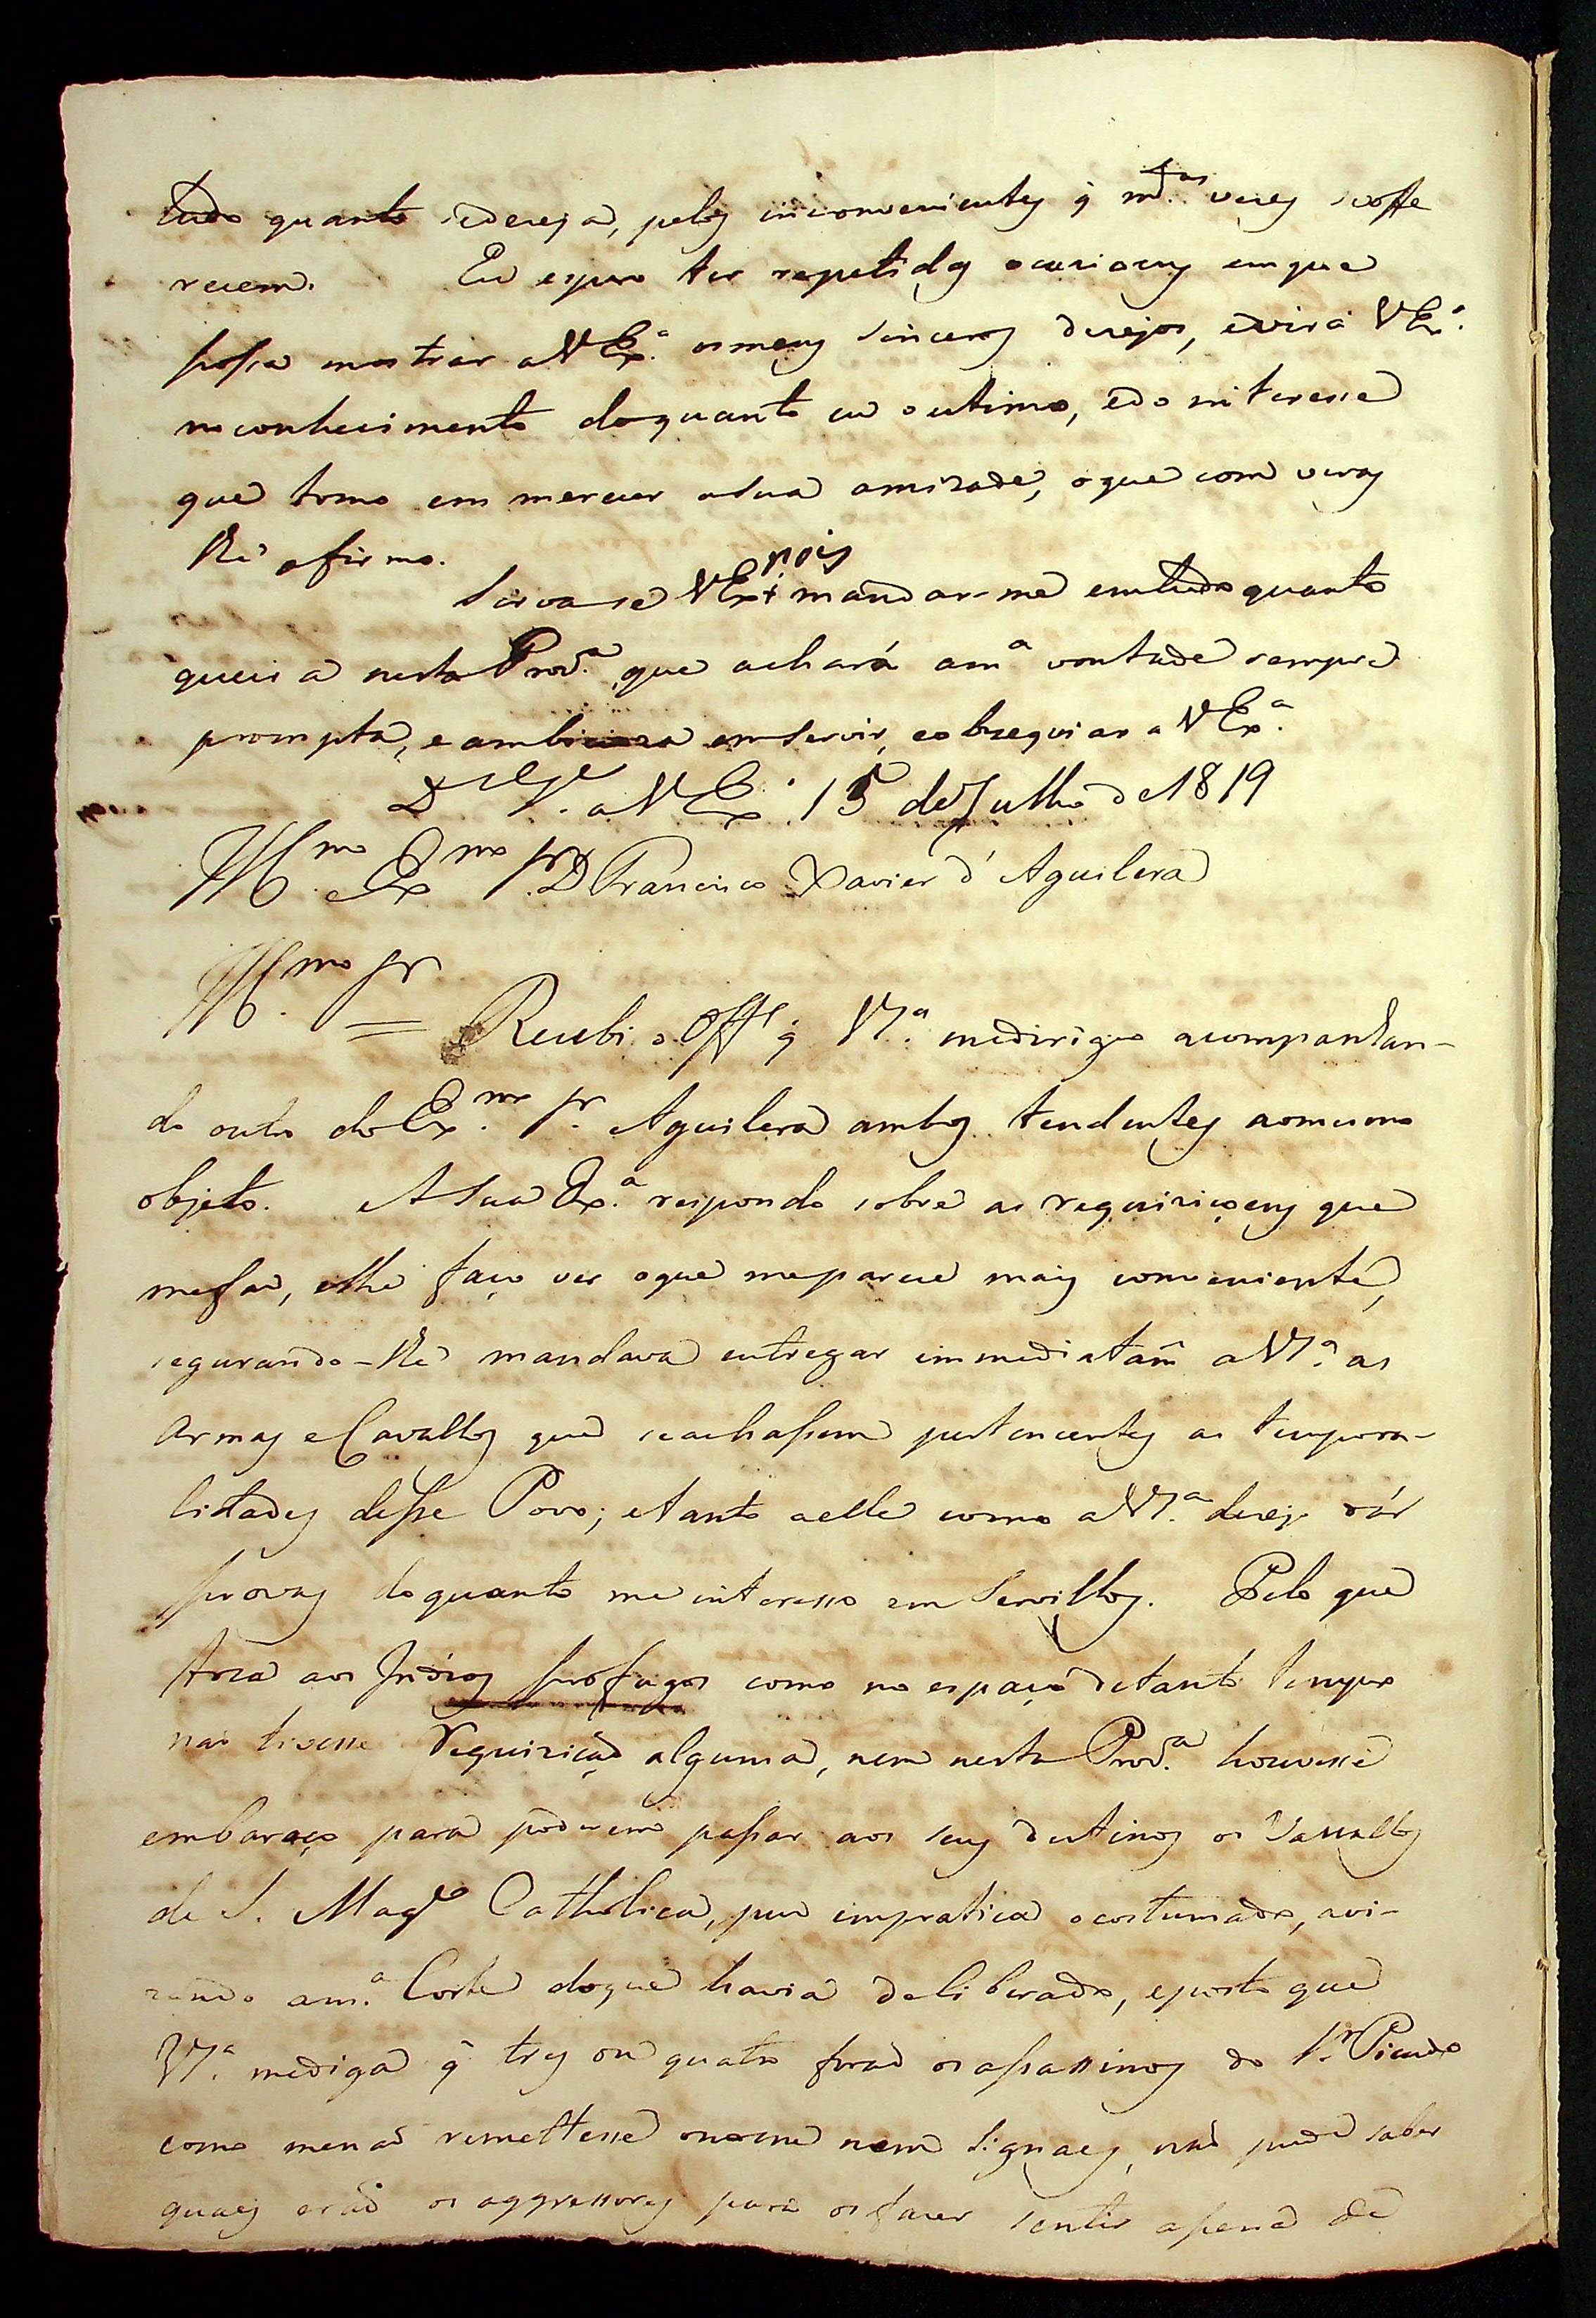 tudo quanto sedeseja, pelos inconvenientes q̃ m.tas vezes seoffe
recem. Eu espero ter repetidas ocasioens emque
possa mostrar a VEx.a osmeus sinceros desejos, evirá VEx.a
noconhecimento doquanto eu o estimo, edo interesse
que tomo em merecer asua amizade, oque com veras
lhe afirmo.
Sirva-se VEx.a pois mandar-me emtudo quanto
queira nesta Prov.a, que achará am.a vontade sempre
prompta, e ambiciosa emservir, eobsequiar a VEx.a
D.s g.e a VEx.a 15 de Julho de 1819
Ill.mo e Ex.mo Sr. D Francisco Xavier d'Aguilera
Ill.mo Sr
= Recebi o Off.o q̃ VS.a medirigio acompanhan-
do outro do Ex.mo Sr. Aguilera ambos tendentes aomesmo
objeto. A Sua Ex.a respondo sobre as requisiçoens que
mefaz, elhe faço ver oque meparece mais conveniente,
segurando-lhe mandava entregar immediatam.e a VS.a as
armas e Cavallos que seachassem pertencentes as tempora-
lidades desse Povo; etanto aelle como a VS.a desejo dár
provas doquanto me interesso em Servillos. Pelo que
toca aos Indios profugos como no espaço detanto tempo
não tivesse requisição alguma, nem nesta Prov.a houvesse
embaraço para poderem passar aos seus destinos os Vassallos
de S. Mag.e Catholica, puz empratica ocostumado, avi-
zando am.a Corte doque havia deliberado, eposto que
VS.a mediga q̃ tres ou quatro forão osassassinos do Sr. Picudo
como menão remettesse onome nem Signaes, não pude saber
quaes erão os aggressores para osfazer sentir apena de